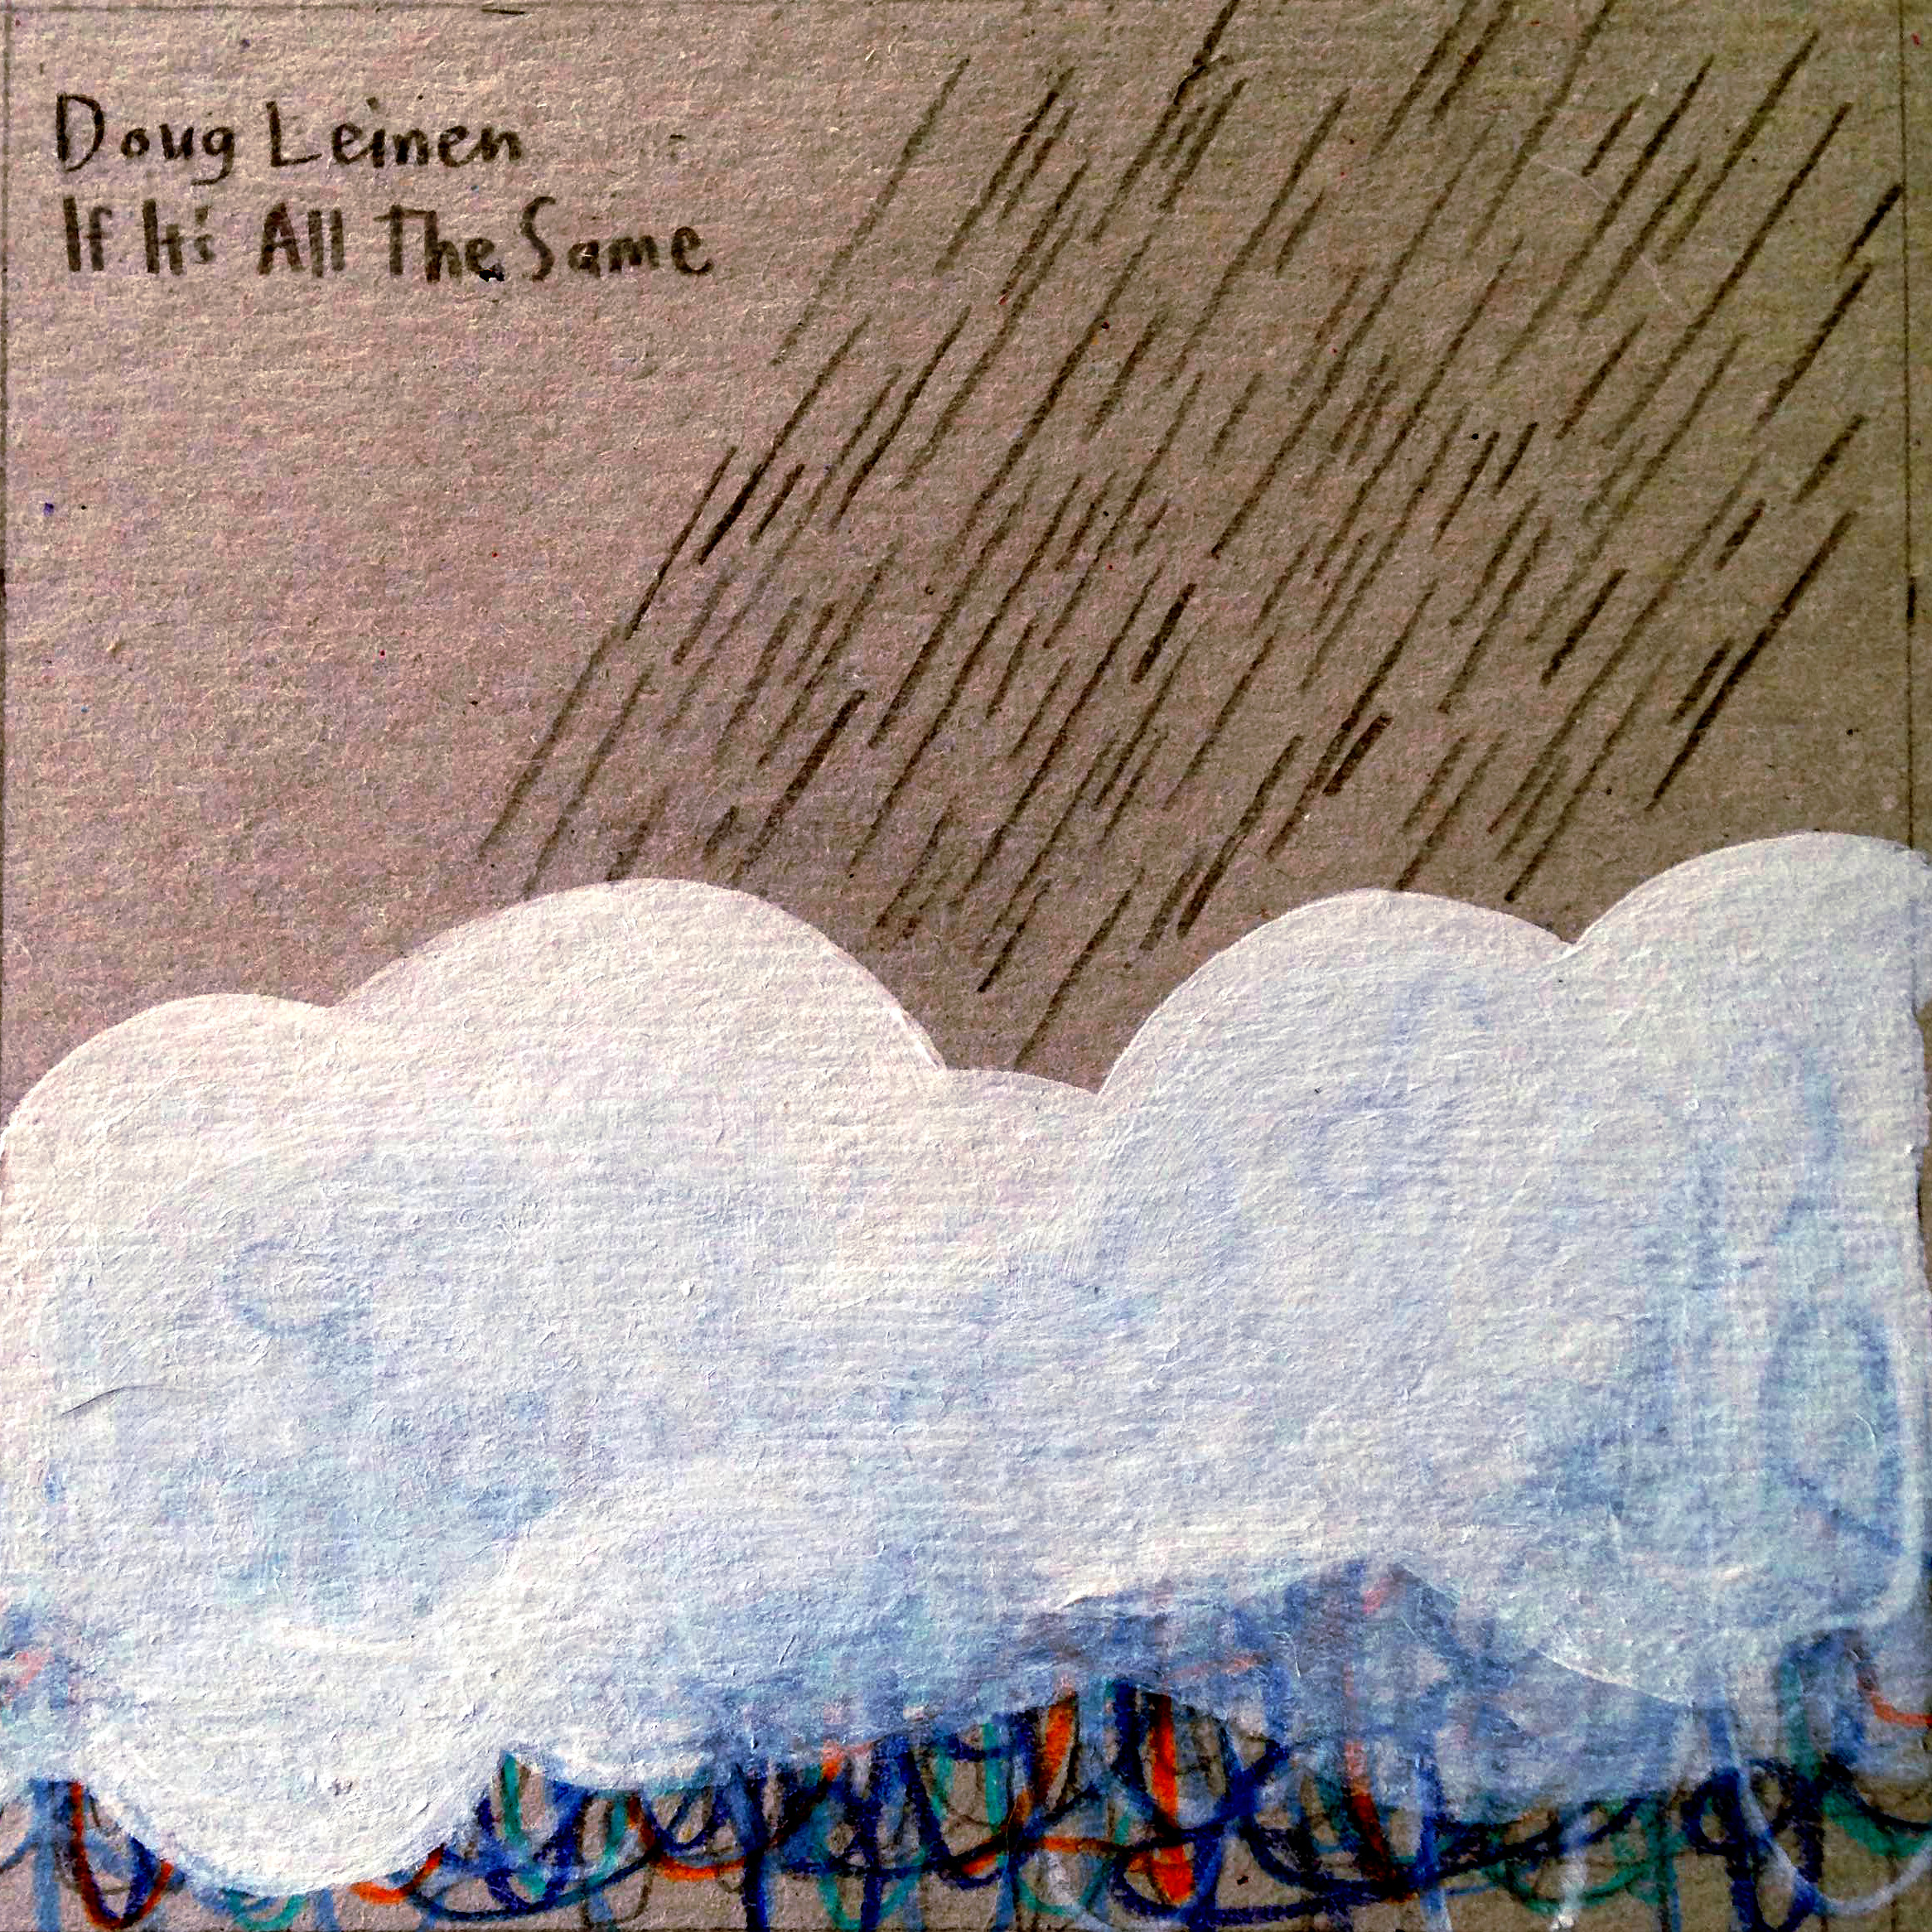 Doug Leinen
If It's All The Same